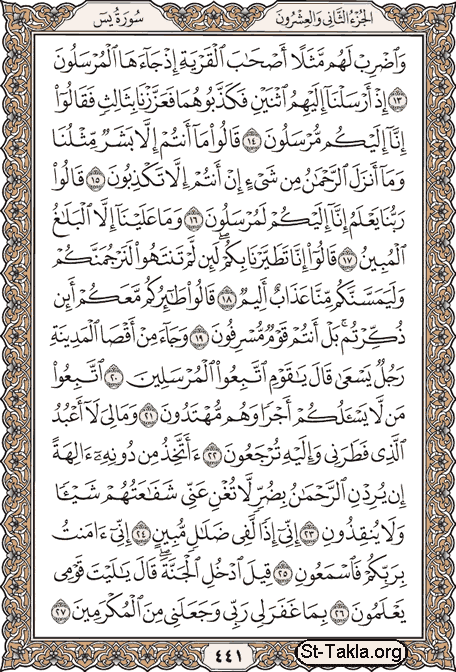 الجزء الثاني والعشرون سورة يس
وَاضْرِبْ لَهُم مَّثَلًا أَصْحَابَ الْقَرْيَةِ إِذْ جَاءَهَا الْمُرْسَلُونَ
١٣ إِذْ أَرْسَلْنَا إِلَيْهِمُ اثْنَيْنِ فَكَذَّبُوهُمَا فَعَزَّزْنَا بِثَالِثٍ فَقَالُوا
إِنَّا إِلَيْكُم مُّرْسَلُونَ ١٤ قَالُوا مَا أَنتُمْ إِلَّا بَشَرٌ مِّثْلُنَا
وَمَا أَنزَلَ الرَّحْمَٰنُ مِن شَيْءٍ إِنْ أَنتُمْ إِلَّا تَكْذِبُونَ ١٥ قَالُوا
رَبُّنَا يَعْلَمُ إِنَّا إِلَيْكُمْ لَمُرْسَلُونَ ١٦ وَمَا عَلَيْنَا إِلَّا الْبَلَٰغُ
الْمُبِينُ ١٧ قَالُوا إِنَّا تَطَيَّرْنَا بِكُمْ لَئِن لَّمْ تَنتَهُوا لَنَرْجُمَنَّكُمْ
وَلَيَمَسَّنَّكُم مِّنَّا عَذَابٌ أَلِيمٌ ١٨ قَالُوا طَٰئِرُكُم مَّعَكُمْ أَئِن
ذُكِّرْتُم بَلْ أَنتُمْ قَوْمٌ مُّسْرِفُونَ ١٩ وَجَاءَ مِنْ أَقْصَا الْمَدِينَةِ
رَجُلٌ يَسْعَىٰ قَالَ يَٰقَوْمِ اتَّبِعُوا الْمُرْسَلِينَ ٢٠ اتَّبِعُوا
مَن لَّا يَسْـَٔلُكُمْ أَجْرًا وَهُم مُّهْتَدُونَ ٢١ وَمَا لِيَ لَا أَعْبُدُ
الَّذِي فَطَرَنِي وَإِلَيْهِ تُرْجَعُونَ ٢٢ ءَأَتَّخِذُ مِن دُونِهِ ءَالِهَةً
إِن يُرِدْنِ الرَّحْمَٰنُ بِضُرٍّ لَّا تُغْنِ عَنِّي شَفَٰعَتُهُمْ شَيْـًٔا
وَلَا يُنقِذُونِ ٢٣ إِنِّي إِذًا لَّفِي ضَلَٰلٍ مُّبِينٍ ٢٤ إِنِّي ءَامَنتُ
بِرَبِّكُمْ فَاسْمَعُونِ ٢٥ قِيلَ ادْخُلِ الْجَنَّةَ قَالَ يَٰلَيْتَ قَوْمِي
يَعْلَمُونَ ٢٦ بِمَا غَفَرَ لِي رَبِّي وَجَعَلَنِي مِنَ الْمُكْرَمِينَ ٢٧
٤٤١
St-Takla.org